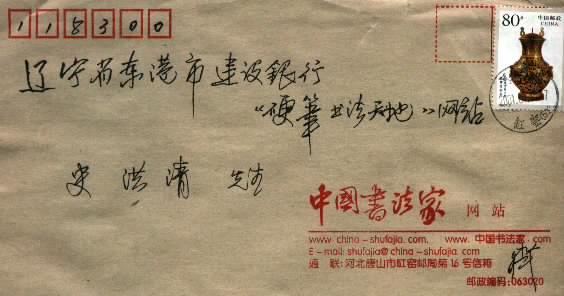 118300
80分
中国邮政
CHINA
辽宁省东港市建设銀行
“硬筆书法天地”网站
史洪清 先生
中國書法家 网站
www.china-shufajia.com. www.中国书法家.com
E-mail:shufajia@china-shufajia.com
通 联:河北唐山市缸窑邮局第16号信箱
邮政编码:063020